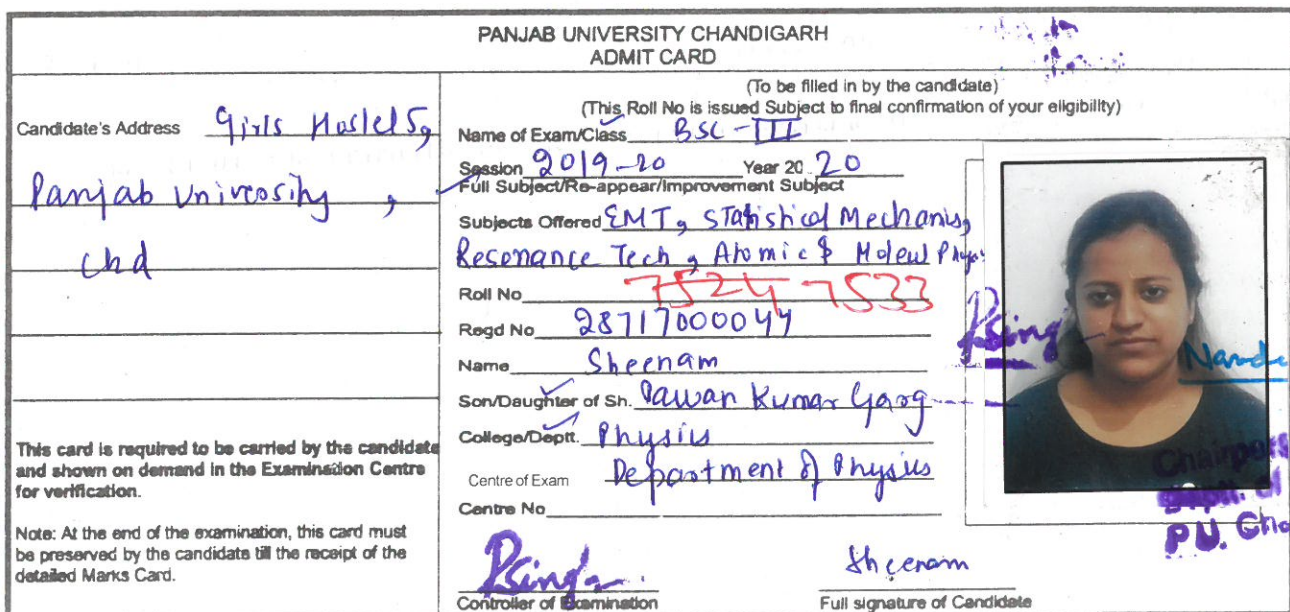 PANJAB UNIVERSITY CHANDIGARH
ADMIT CARD
Candidate's Address Girls Hostel 5,
Panjab University,
Chd
This card is required to be carried by the candidate
and shown on demand in the Examination Centre
for verification.
Note: At the end of the examination, this card must
be preserved by the candidate till the receipt of the
detailed Marks Card.
(To be filled in by the candidate)
(This Roll No is issued Subject to final confirmation of your eligibility)
Name of Exam/Class BSC-III
Session 2019-20 Year 20 20
Full Subject/Re-appear/Improvement Subject
Subjects Offered EMT, Statistical Mechanis,
Resonance Tech, Atomic & Molecul Phys
Roll No 7524 7533
Regd No 28717000044
Name Sheenam
Son/Daughter of Sh. Pawan Kumar Garg
College/Deptt. Physics
Centre of Exam Department of Physics
Centre No
Controller of Examination
Sheenam
Full signature of Candidate
Chairpers
Deptt. of
P.U. Cha